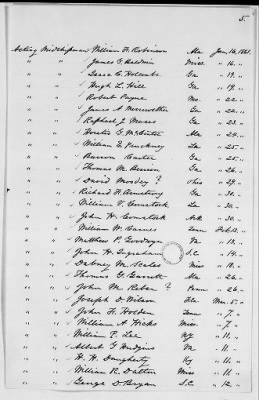 5.
Acting Midshipman William F. Robinson Ala Jan. 16, 1861.
" " James G. Baldwin Miss " 16. "
" " Isaac C. Holcombe Ga " 19. "
" " Hugh L. Hill Ga " 19. "
" " Robert Payne Mo. " 22 "
" " James A. Merriwether Ga " 22 "
" " Raphael J. Moses Ga " 23 "
" " Horatio G. McClintoc Ala " 24 "
" " William L. Pinckney La " 25 "
" " Barron Carter Ga " 25 "
" " Thomas M. Berrien Ga " 26 "
" " David Moseley ? Ohio " 29 "
" " Richard F. Armstrong Ga " 30 "
" " William V. Comstock La " 30 "
" " John H. Comstock Ark " 30 "
" " William W. Carnes Tenn Feb. 13 "
" " Matthew P. Goodwyn Va " 13 "
" " John H. Ingraham S.C " 14 "
" " Dabney M. Scales Miss " 18 "
" " Thomas G. Garrett Ala " 26 "
" " John M. Reber ? Penn " 26 "
" " Joseph D. Wilson Fla Mar. 5 "
" " John F. Holden Tenn " 7 "
" " William A. Hicks Miss " 7 "
" " William P. Lee Ky " 11 "
" " Albert G. Hudgins Va " 11 "
" " H. H. Daugherty Ky " 11 "
" " William R. Dalton Miss " 11 "
" " George D. Bryan S.C " 12 "